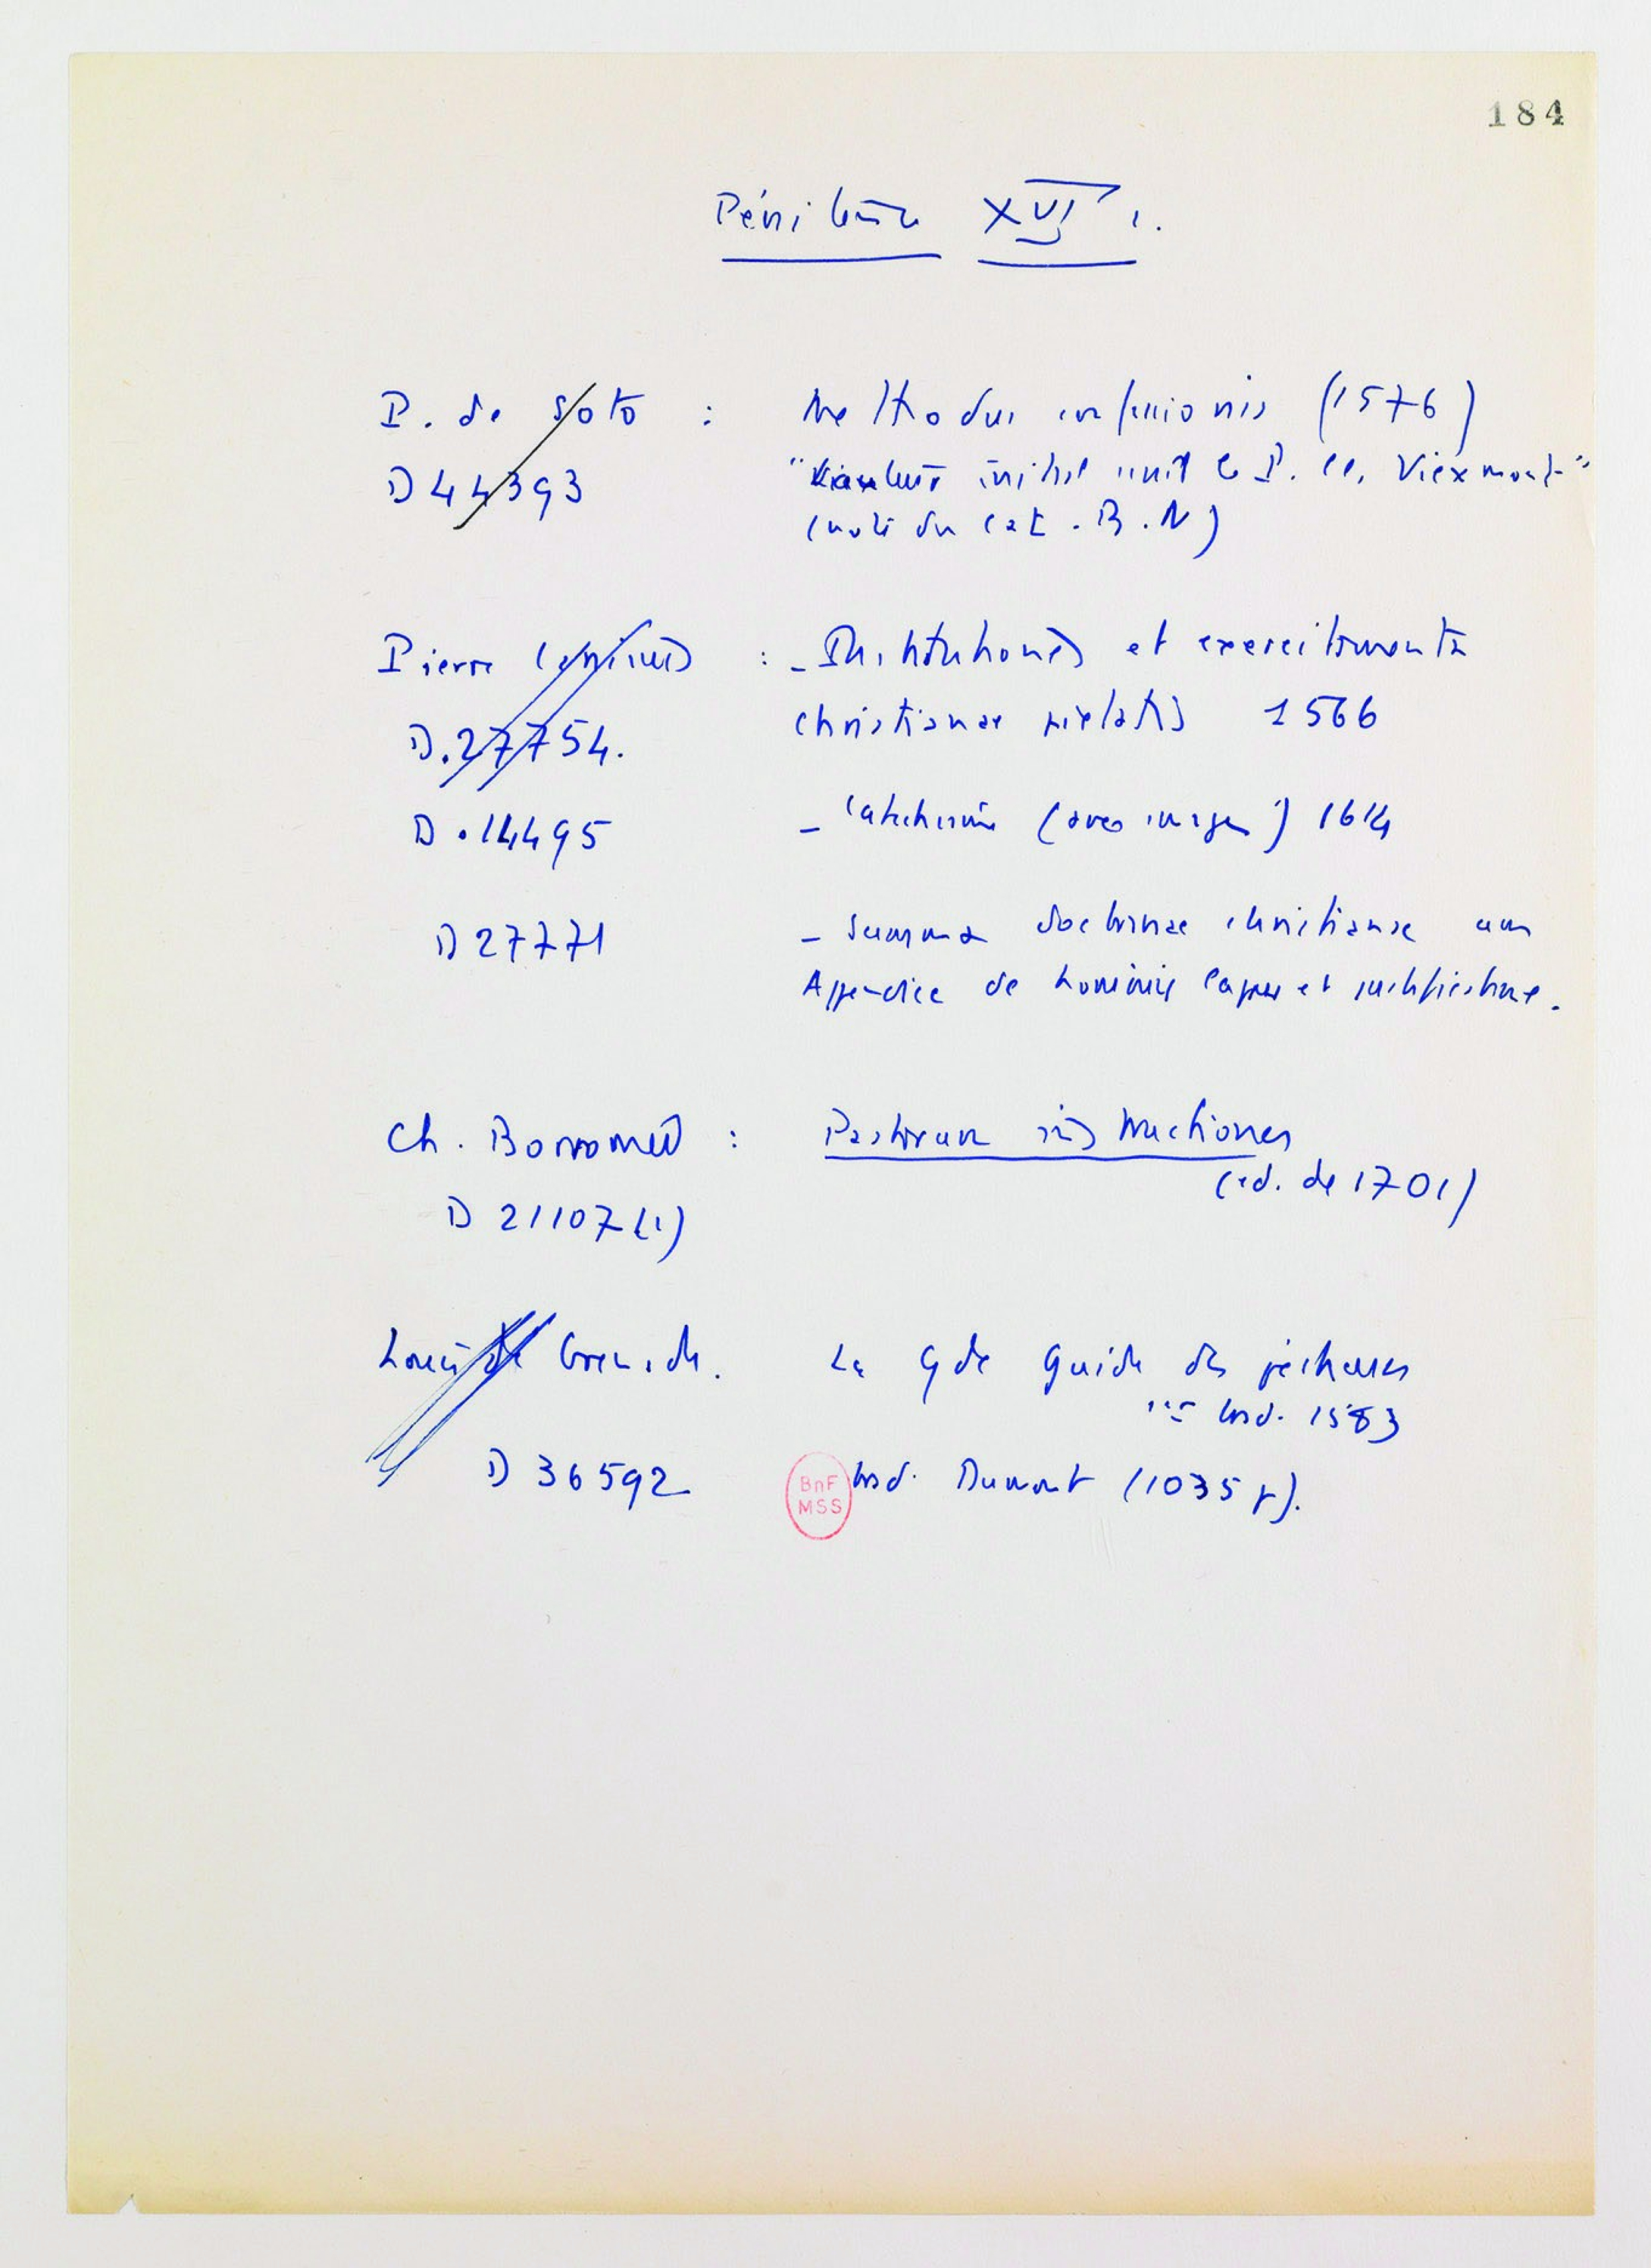 184
Pénitence XVI s.
P. de Soto : Methodus confessionis (1576)
D 44393 "L'auteur initial serait le P. Cl. Viexmont"
(note du cat. B.N)
Pierre Canisius : - Institutiones et exercitamenta
D.27754. christianae pietatis 1566
D.14495 - Catechismus (avec images) 1614
D 27771 - Summa doctrinae christianae cum
Appendice de hominis lapsu et justificatione.
Ch. Borromeo : Pastorum instructiones
(ed. de 1701)
D 21107 (1)
Louis de Grenade. La Gde Guide des pécheurs
trad. 1583
D 36592 trad. Dumont (1035 p).
BnF
MSS